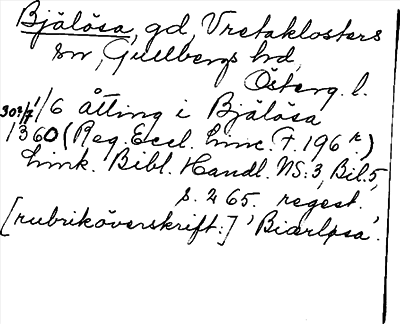 Bjälösa, gd, Vretaklosters
sn, Gullbergs hd,
Österg. l.
30?/7 1/6 åtting i Bjälösa
1360 (Reg. Eccl. Linc. F. 196 r.)
Link. Bibl. Handl. NS:3, Bil. 5,
s. 265. regest.
[rubriköverskrift:] 'Biærløsa'.